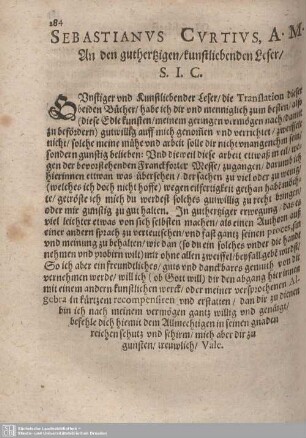 184
SEBASTIANVS CVRTIVS, A. M.
An den guthertzigen/kunstliebenden Leser/
S. I. C.
GVnstiger vnd Kunstliebender Leser/ die Translation dieser
beiden Bücher/ habe ich dir vnd menniglich zum besten/ als
(diese Edle kunsten/ meinem geringen vermögen nach/ damit
zu befördern) gutwillig auff mich genommen vnd verrichtet/ zweiffel
nicht/ solche meine mühe vnd arbeit solle dir nicht vnangenem sein/
sondern gunstig belieben: Vnd dieweil diese arbeit etwas in eil/ we-
gen der bevorstehenden Franckforter Messe/ zugangen/ darumb ich
hierinnen etwan was übersehen/ der sachen zu viel oder zu wenig/
(welches ich doch nicht hoffe) wegen eilfertigkeit gethan haben
te/ getröste ich mich du werdest solches gutwillig zu recht bringen/
oder mir gunstig zu gut halten. In guthertziger erwegung/ das es
viel leichter etwas von sich selbsten machen/ als einen Authorn aus
einer andern sprach zu vertreuschen/ vnd fast gantz seinen process, sin
vnd meinung zu behalten/ wie dan (so du ein solches vnder die handt
nehmen vnd probirn wilt) mir ohne allen zweiffel/ beyfall geben wirst.
So ich aber ein freundliches/ guts vnd danckbares gemüth von dir
vernehmen werde/ will ich (ob Gott will) dir den abgang hier innen
mit einem andern kunstlichen werck/ oder meiner versprochenen Al-
gebra in kürtzem recompensiren vnd erstatten/ dan dir zu dienen
bin ich nach meinem vermögen gantz willig vnd genäigt/
befehle dich hiemit dem Allmechtigen in seinen gnaden
reichen schutz vnd schirm/ mich aber dir zu
gunsten/ trewlich/ Vale.